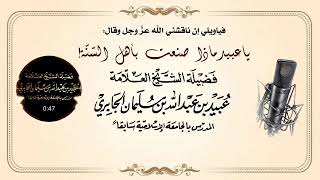 فياويلي إن ناقشني الله عزَّ وجل وقال:
يا عبيد ماذا صنعت بأهل السّنّة!
فضيلة الشيخ العلّامة
عُبيد بن عبد الله بن سليمان الجابري
المدرس بالجامعة الإسلامية سابقاً
0:47